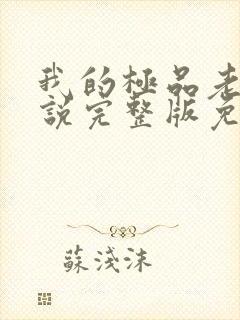 我的極品老
說完整版免
蘇淺沫